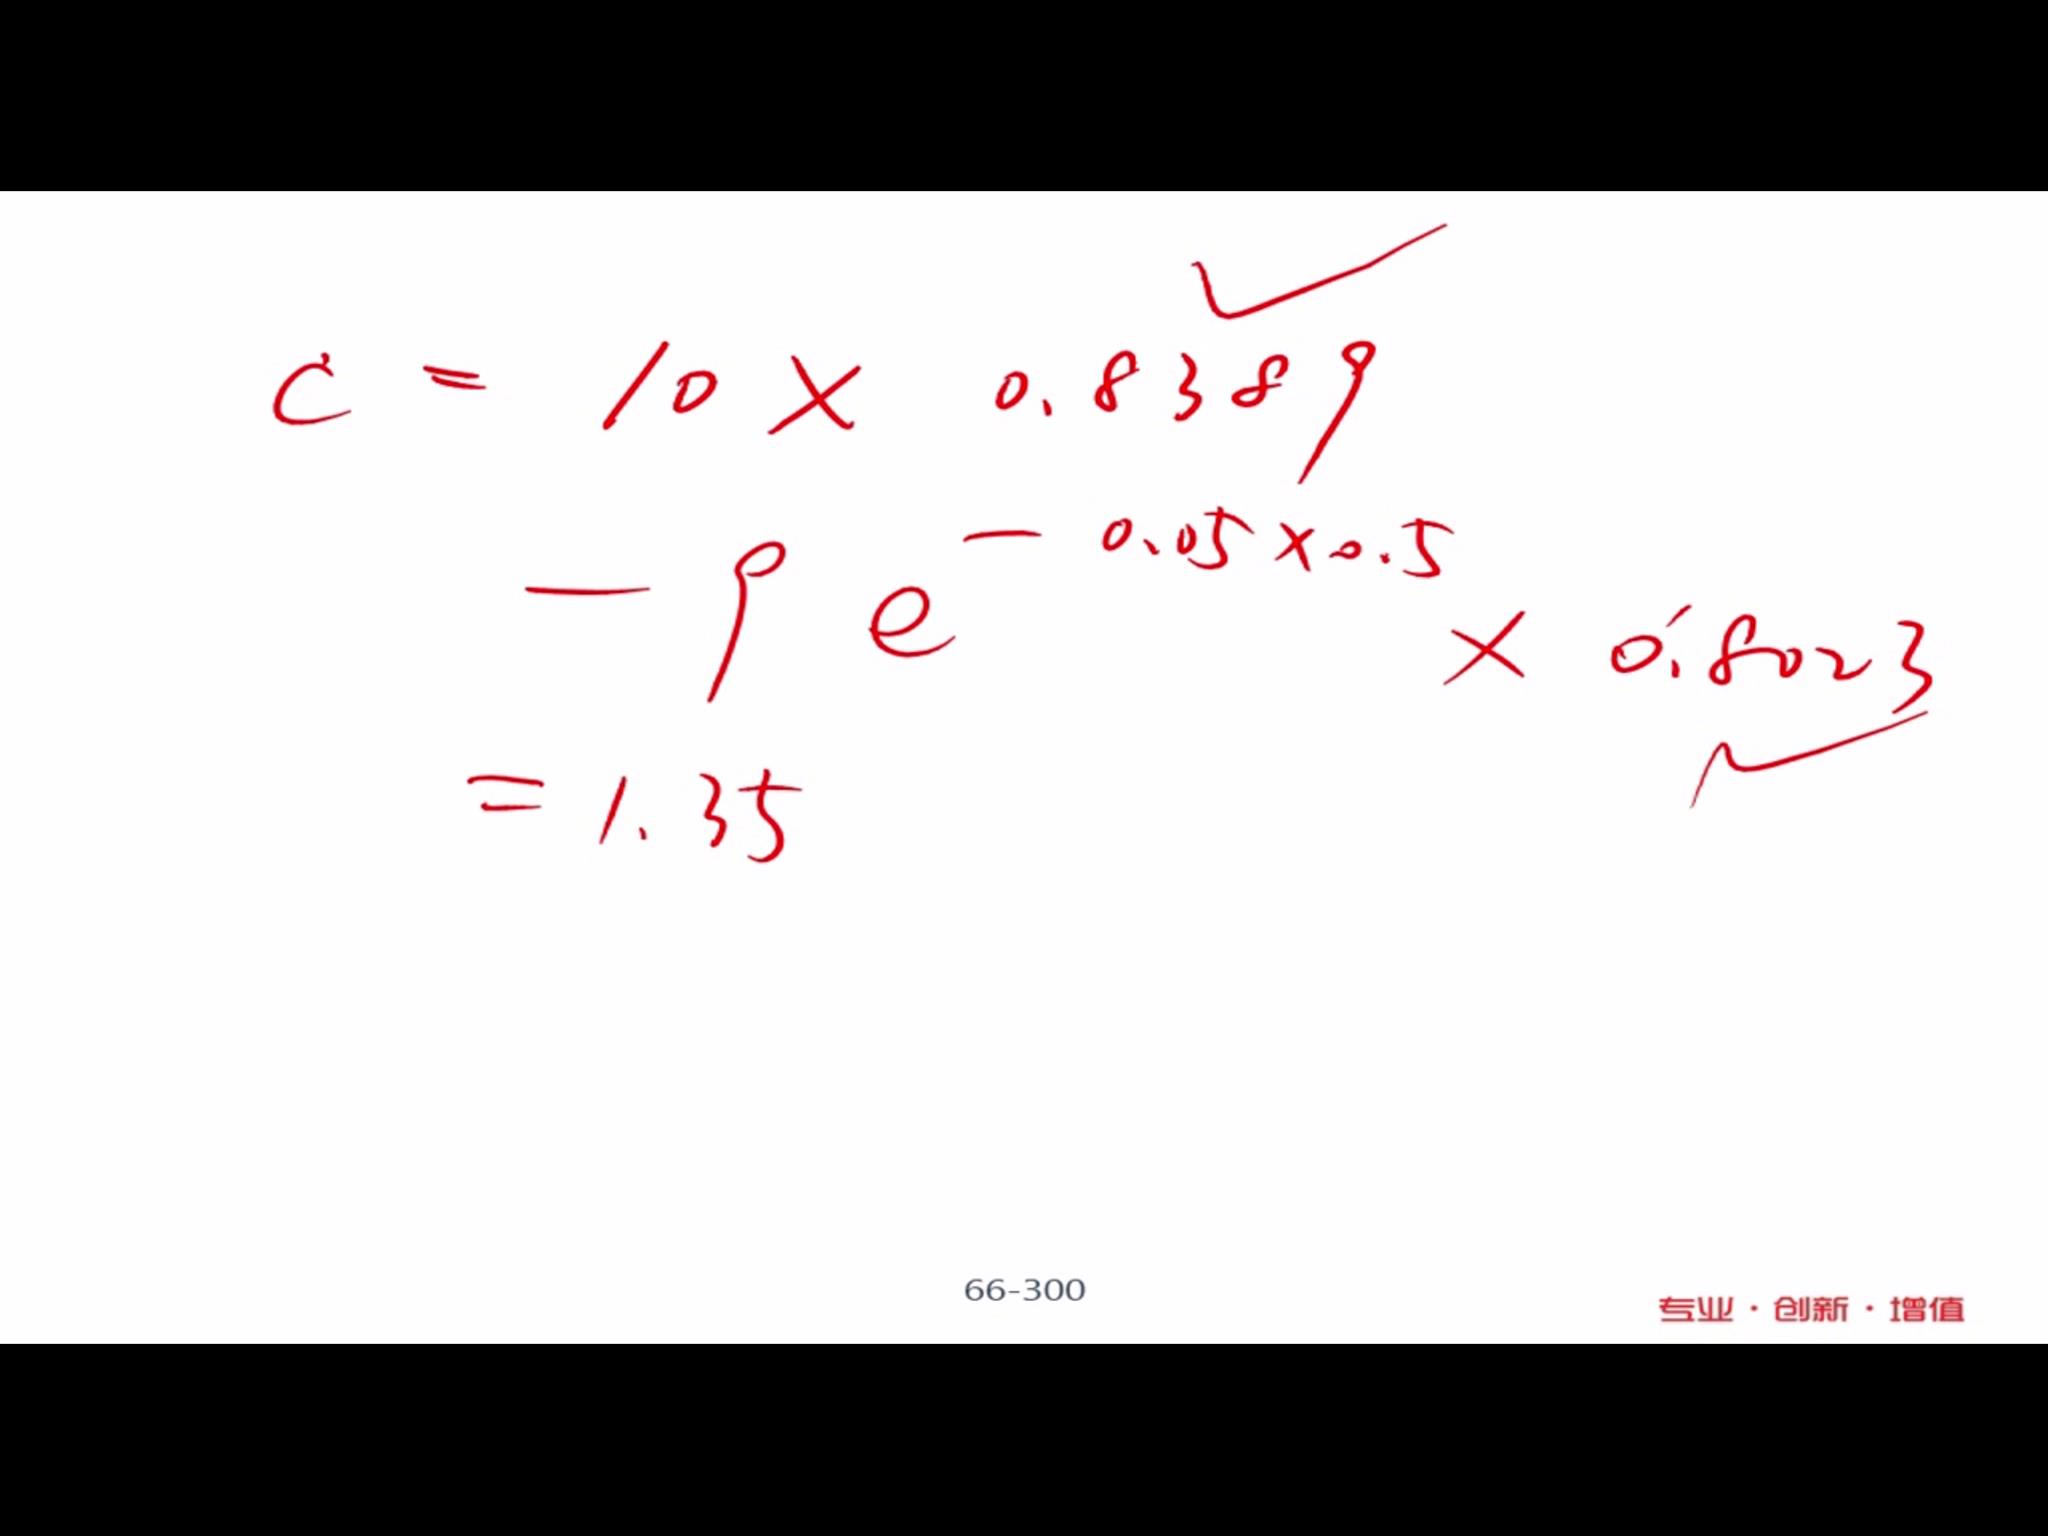 C = 10 × 0.8389
- 9 e^{-0.05×0.5} × 0.8023
= 1.35
66-300
专业·创新·增值